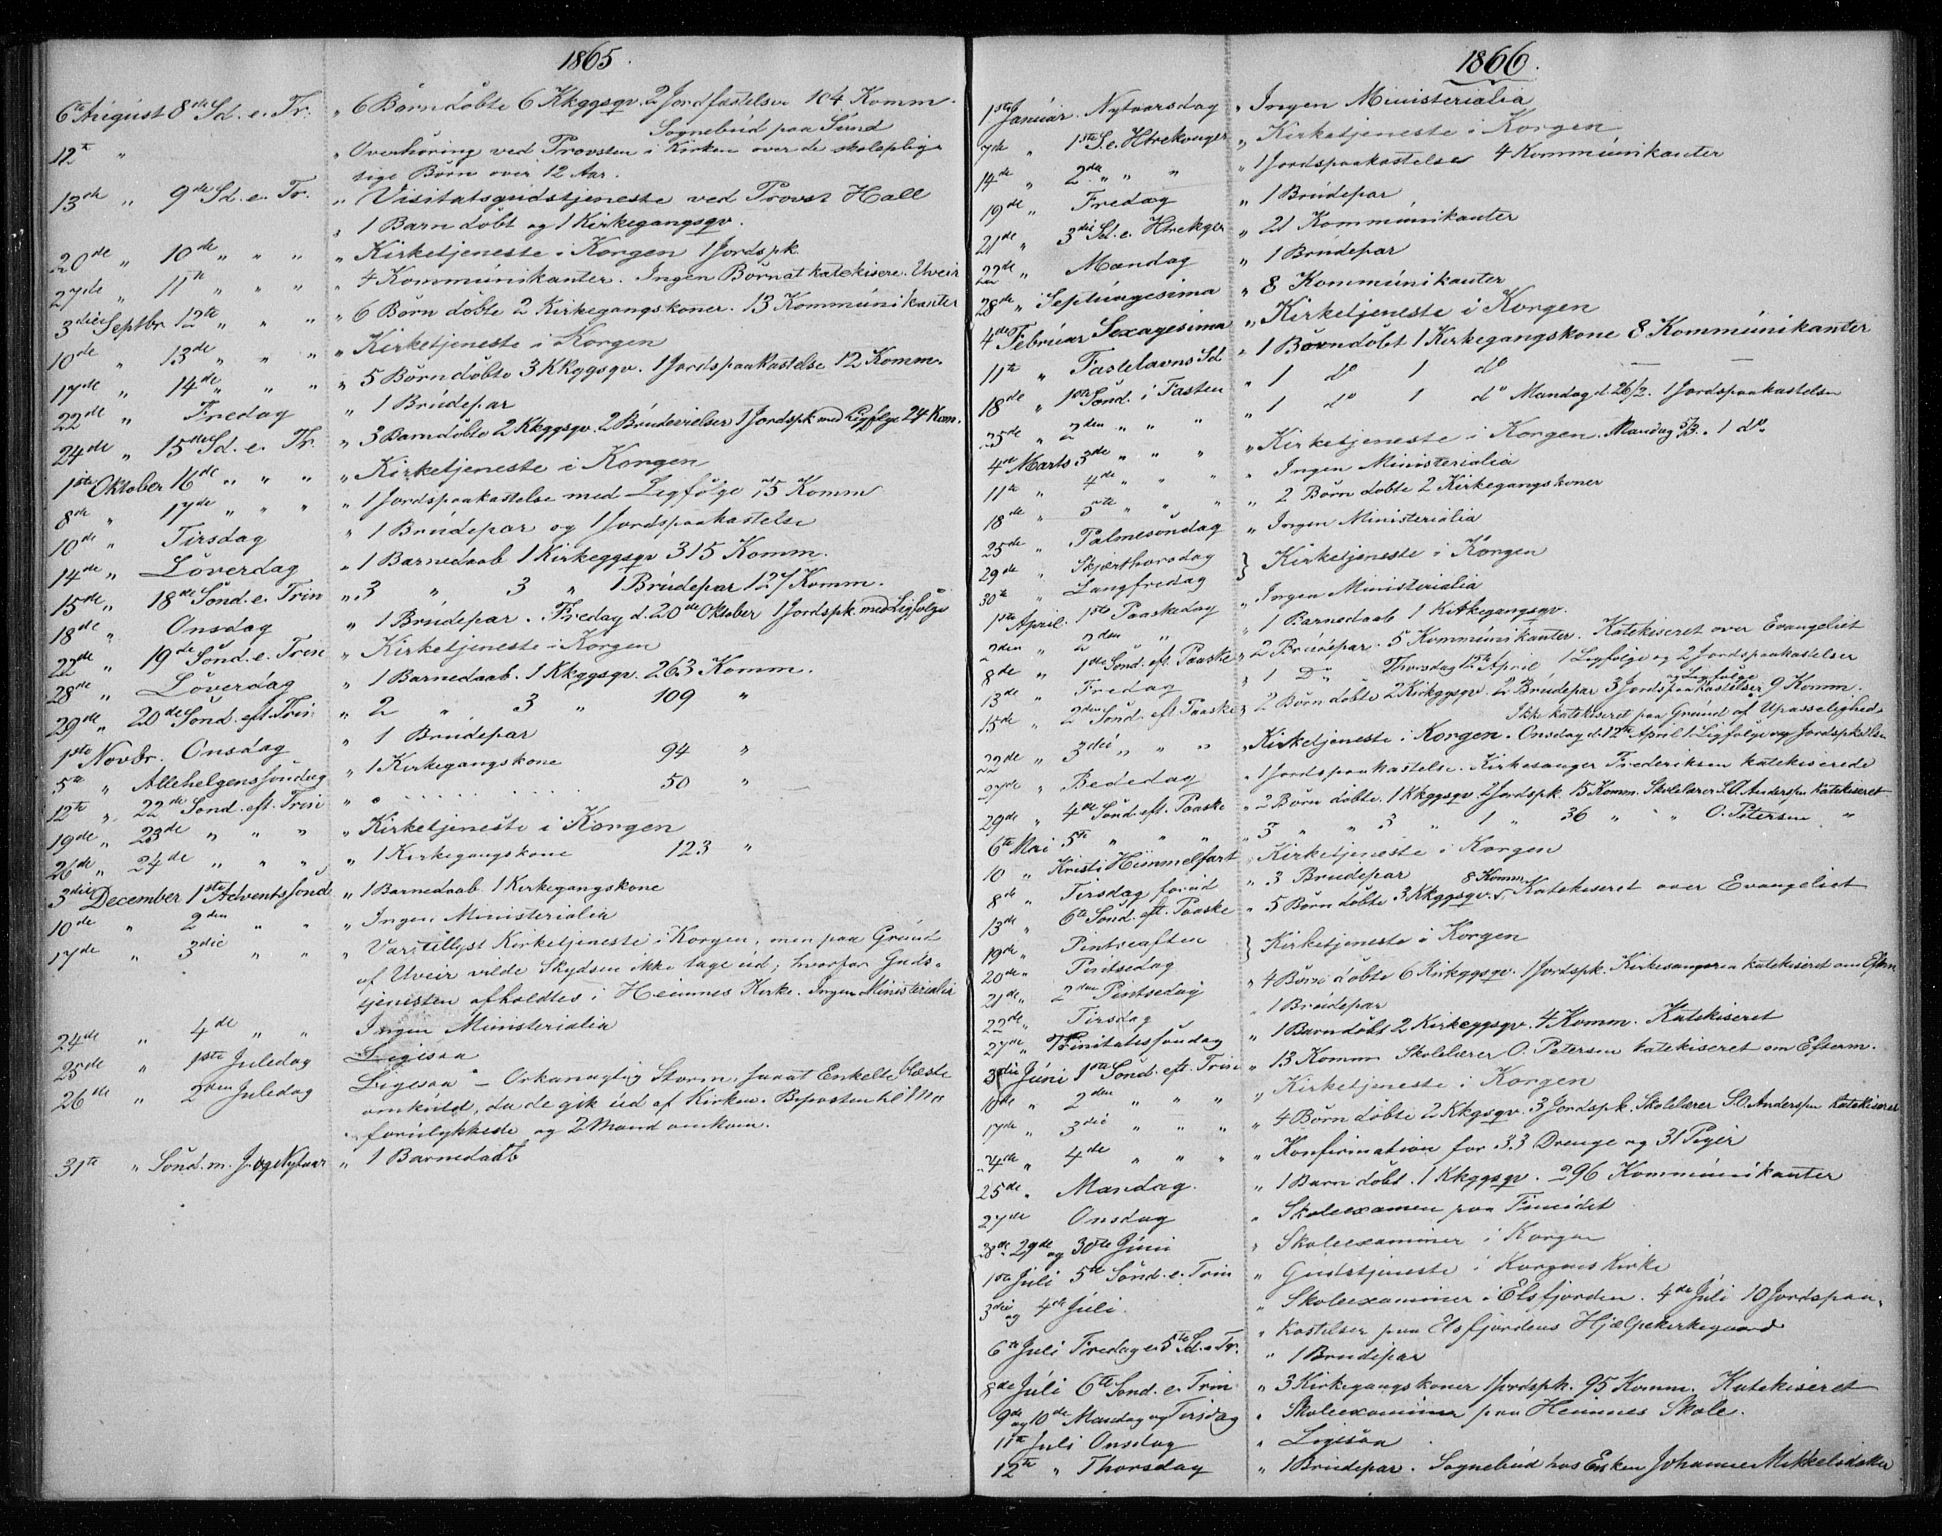 1865.
6te August 8de Sd. e. Tr. " 6 Børn døbte 6 Kkggsqv. 2 Jordfæstelser 104 Komm.
Sognebud paa Sund
12te " " Overhøring ved Provsten i Kirken over de skoleplig-
tige Børn over 12 Aar.
13de " 9de Sd. e. Tr. " Visitatsgudstjeneste ved Provst Hall
" 1 Barn døbt og 1 Kirkegangsqv.
20de " 10de " " " Kirketjeneste i Korgen 1 Jordspk.
27de " 11te " " " 4 Kommunikanter. Ingen Børn at katekisere. Uveir
3die Septbr. 12te " " " 6 Børn døbte 2 Kirkegangskoner. 13 Kommunikanter
10de " 13de " " " Kirketjeneste i Korgen
17de " 14de " " " 5 Børn døbte 3 Kkggsqv. 1 Jordspaakastelse 12 Komm.
22de " Fredag " 1 Brudepar
24de " 15de Sd. e. Tr. " 3 Børn døbte 2 Kkggsqv. 2 Brudevielser 1 Jordspk med Ligfølge 24 Kom.
1ste Oktober 16de " " " Kirketjeneste i Korgen
8de " 17de " " " 1 Jordspaakastelse med Ligfølge 75 Komm
10de " Tirsdag " 1 Brudepar og 1 Jordspaakastelse
14de " Løverdag " 1 Barnedaab 1 Kirkeggsqv 315 Komm.
15de " 18de Sønd. e. Trin " 3 " 3 " 1 Brudepar 127 Komm.
18de " Onsdag " 1 Brudepar. Fredag d. 20de Oktober 1 Jordspk. med Ligfølge
22de " 19de Sønd. e. Trin " Kirketjeneste i Korgen
28de " Løverdag " 1 Barnedaab. 1 Kkggsqv. 263 Komm.
29de " 20de Sønd. eft. Trin " 2 " 3 " 109 "
1ste Novbr. Onsdag " 1 Brudepar
5te " Allehelgenssøndag " 1 Kirkegangskone 94 "
12te " 22de Sønd. eft. Trin " . . . . . . . . 50 "
19de " 23de " " " Kirketjeneste i Korgen
26de " 24de " " " 1 Kirkegangskone 123 "
3die December 1ste Adventssønd " 1 Barnedaab 1 Kirkegangskone
10de " 2den " " " Ingen Ministerialia
17de " 3die " " " Var tillyst Kirketjeneste i Korgen, men paa Grund
af Uveir vilde Skydsen ikke tage ud; hvorfor Guds-
tjenesten afholdtes i Hemnes Kirke. Ingen Ministerialia
24de " 4de " " Ingen Ministerialia
25de " 1ste Juledag Ligesaa
26de " 2den Juledag Ligesaa – Orkanagtig Storm, saa at Enkelte blæste
omkuld, da de gik ud af Kirken. Beposten til Mo
forulykkede og 2 Mand omkom.
31te " Sønd. m. J. og Nytaar " 1 Barnedaab
1866.
1ste Januar. Nytaarsdag " Ingen Ministerialia
7de " 1ste S. e. Htrekonger " Kirketjeneste i Korgen
14de " 2den " " " 1 Jordspaakastelse 4 Kommunikanter
19de " Fredag " 1 Brudepar
21de " 3die Sd. e. Htrekger " 21 Kommunikanter
22de " Mandag " 1 Brudepar
28de " Septuagesima " 8 Kommunikanter
4de Februar Sexagesima " Kirketjeneste i Korgen
11te " Fastelavns Sd " 1 Barn døbt 1 Kirkegangskone 8 Kommunikanter
18de " 1ste Sønd. i Fasten " 1 do 1 do —
25de " 2den " " " 1 do 1 do Mandag d. 26/2. 1 Jordspaakastelse
4de Marts 3de " " " Kirketjeneste i Korgen. Mandag 5/3. 1 do.
11te " 4de " " " Ingen Ministerialia
18de " 5te " " " 2 Børn døbte 2 Kirkegangskoner
25de " Palmesøndag " Ingen Ministerialia
29de " Skjærthorsdag } Kirketjeneste i Korgen
30te " Langfredag
1ste April. 1ste Paaskedag " Ingen Ministerialia
2den " 2den " " 1 Barnedaab 1 Kirkegangsqv.
8de " 1ste Sønd. eft. Paaske " 2 Brudepar. 5 Kommunikanter. Katekiseret over Evangeliet
13de " Fredag " 1 Do Thorsdag 12te April 1 Ligfølge og 2 Jordspaakastelser
15de " 2den Sønd. eft Paaske " 2 Børn døbte 2 Kirkggsqv. 2 Brudepar 3 Jordspaakastelser og Ligfølge 9 Komm.
Ikke katekiseret paa Grund af Upasselighed
22de " 3die " " " Kirketjeneste i Korgen. Onsdag d. 12te April 1 Ligfølge og Jordspkstlse
27de " Bededag " 1 Jordspaakastelse. Kirkesanger Frederiksen katekiserede
29de " 4de Sønd. eft. Paaske " 2 Børn døbte. 1 Kkggsqv. 2 Jordspk. 15 Komm. Skolelærer S. O. Andersen katekiseret
6te Mai 5te " " " 3 " " 3 " 1 " 36 " " O. Petersen "
10 " Kristi Himmelfart " Kirketjeneste i Korgen
8de " Tirsdag forud " 3 Brudepar
13de " 6te Sønd. eft. Paaske " 5 Børn døbte 3 Kkggsqv. 8 Komm. Katekiseret over Evangeliet
19de " Pintseaften } Kirketjeneste i Korgen
20de " Pintsedag
21de " 2den Pintsedag " 4 Børn døbte 6 Kirkggsqv. 1 Jordspk. Kirkesangeren katekiseret om Efterm
22de " Tirsdag " 1 Brudepar
27de " Trinitatissøndag " 1 Barn døbt 2 Kirkeggsqv. 4 Komm. Katekiseret
3die Juni 1ste Sønd. eft. Trin " 13 Komm Skolelærer O. Petersen katekiseret om Efterm.
10de " 2den " " " Kirketjeneste i Korgen
17de " 3die " " " 4 Børn døbte 2 Kkgsqv. 3 Jordspk. Skolelærer S. O. Andersen katekiseret
24de " 4de " " " Konfirmation for 33 Drenge og 31 Piger
25de " Mandag. " 1 Barn døbt. 1 Kkggsqv. 296 Kommunikanter
27de Onsdag " Skoleexamen paa Finnidet
28de 29de og 30te Juni " Skoleexaminer i Korgen
1ste Juli 5te Sønd. e. Trin " Gudstjeneste i Korgens Kirke
3die og 4de Juli. " Skoleexaminer i Elsfjorden. 4de Juli 10 Jordspaa-
" kastelser paa Elsfjordens Hjælpekirkegaard
6te Juli Fredag e. 5te Sd. e Tr. " 1 Brudepar
8de Juli 6te Sønd. e. Trin " 3 Kirkegangskoner 1 Jordspk. 95 Komm. Katekiseret
9de og 10de Mandag og Tirsdag " Skoleexaminer paa Hemnes Skole.
11te Juli Onsdag " Ligesaa
12te " Thorsdag " 1 Brudepar. Sognebud hos Enken Johanne Mikkelsdatter